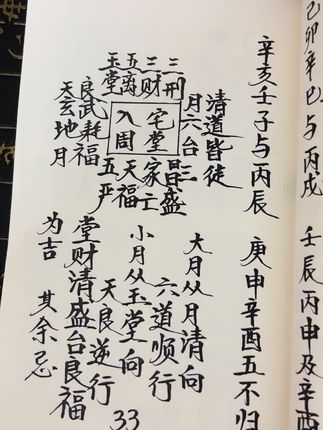 己卯辛巳与丙戌 壬辰丙申及辛酉
辛亥壬子与丙辰 庚申辛酉五不归
清道皆徒
月六台
三刑
三财
五离
玉堂
宅堂
入周
良武耗福
天玄地月
三盛
家亡
天福
五严
大月从月清向
六道顺行
小月从玉堂向
天良逆行
堂财清盛台良福
为吉 其余忌
33